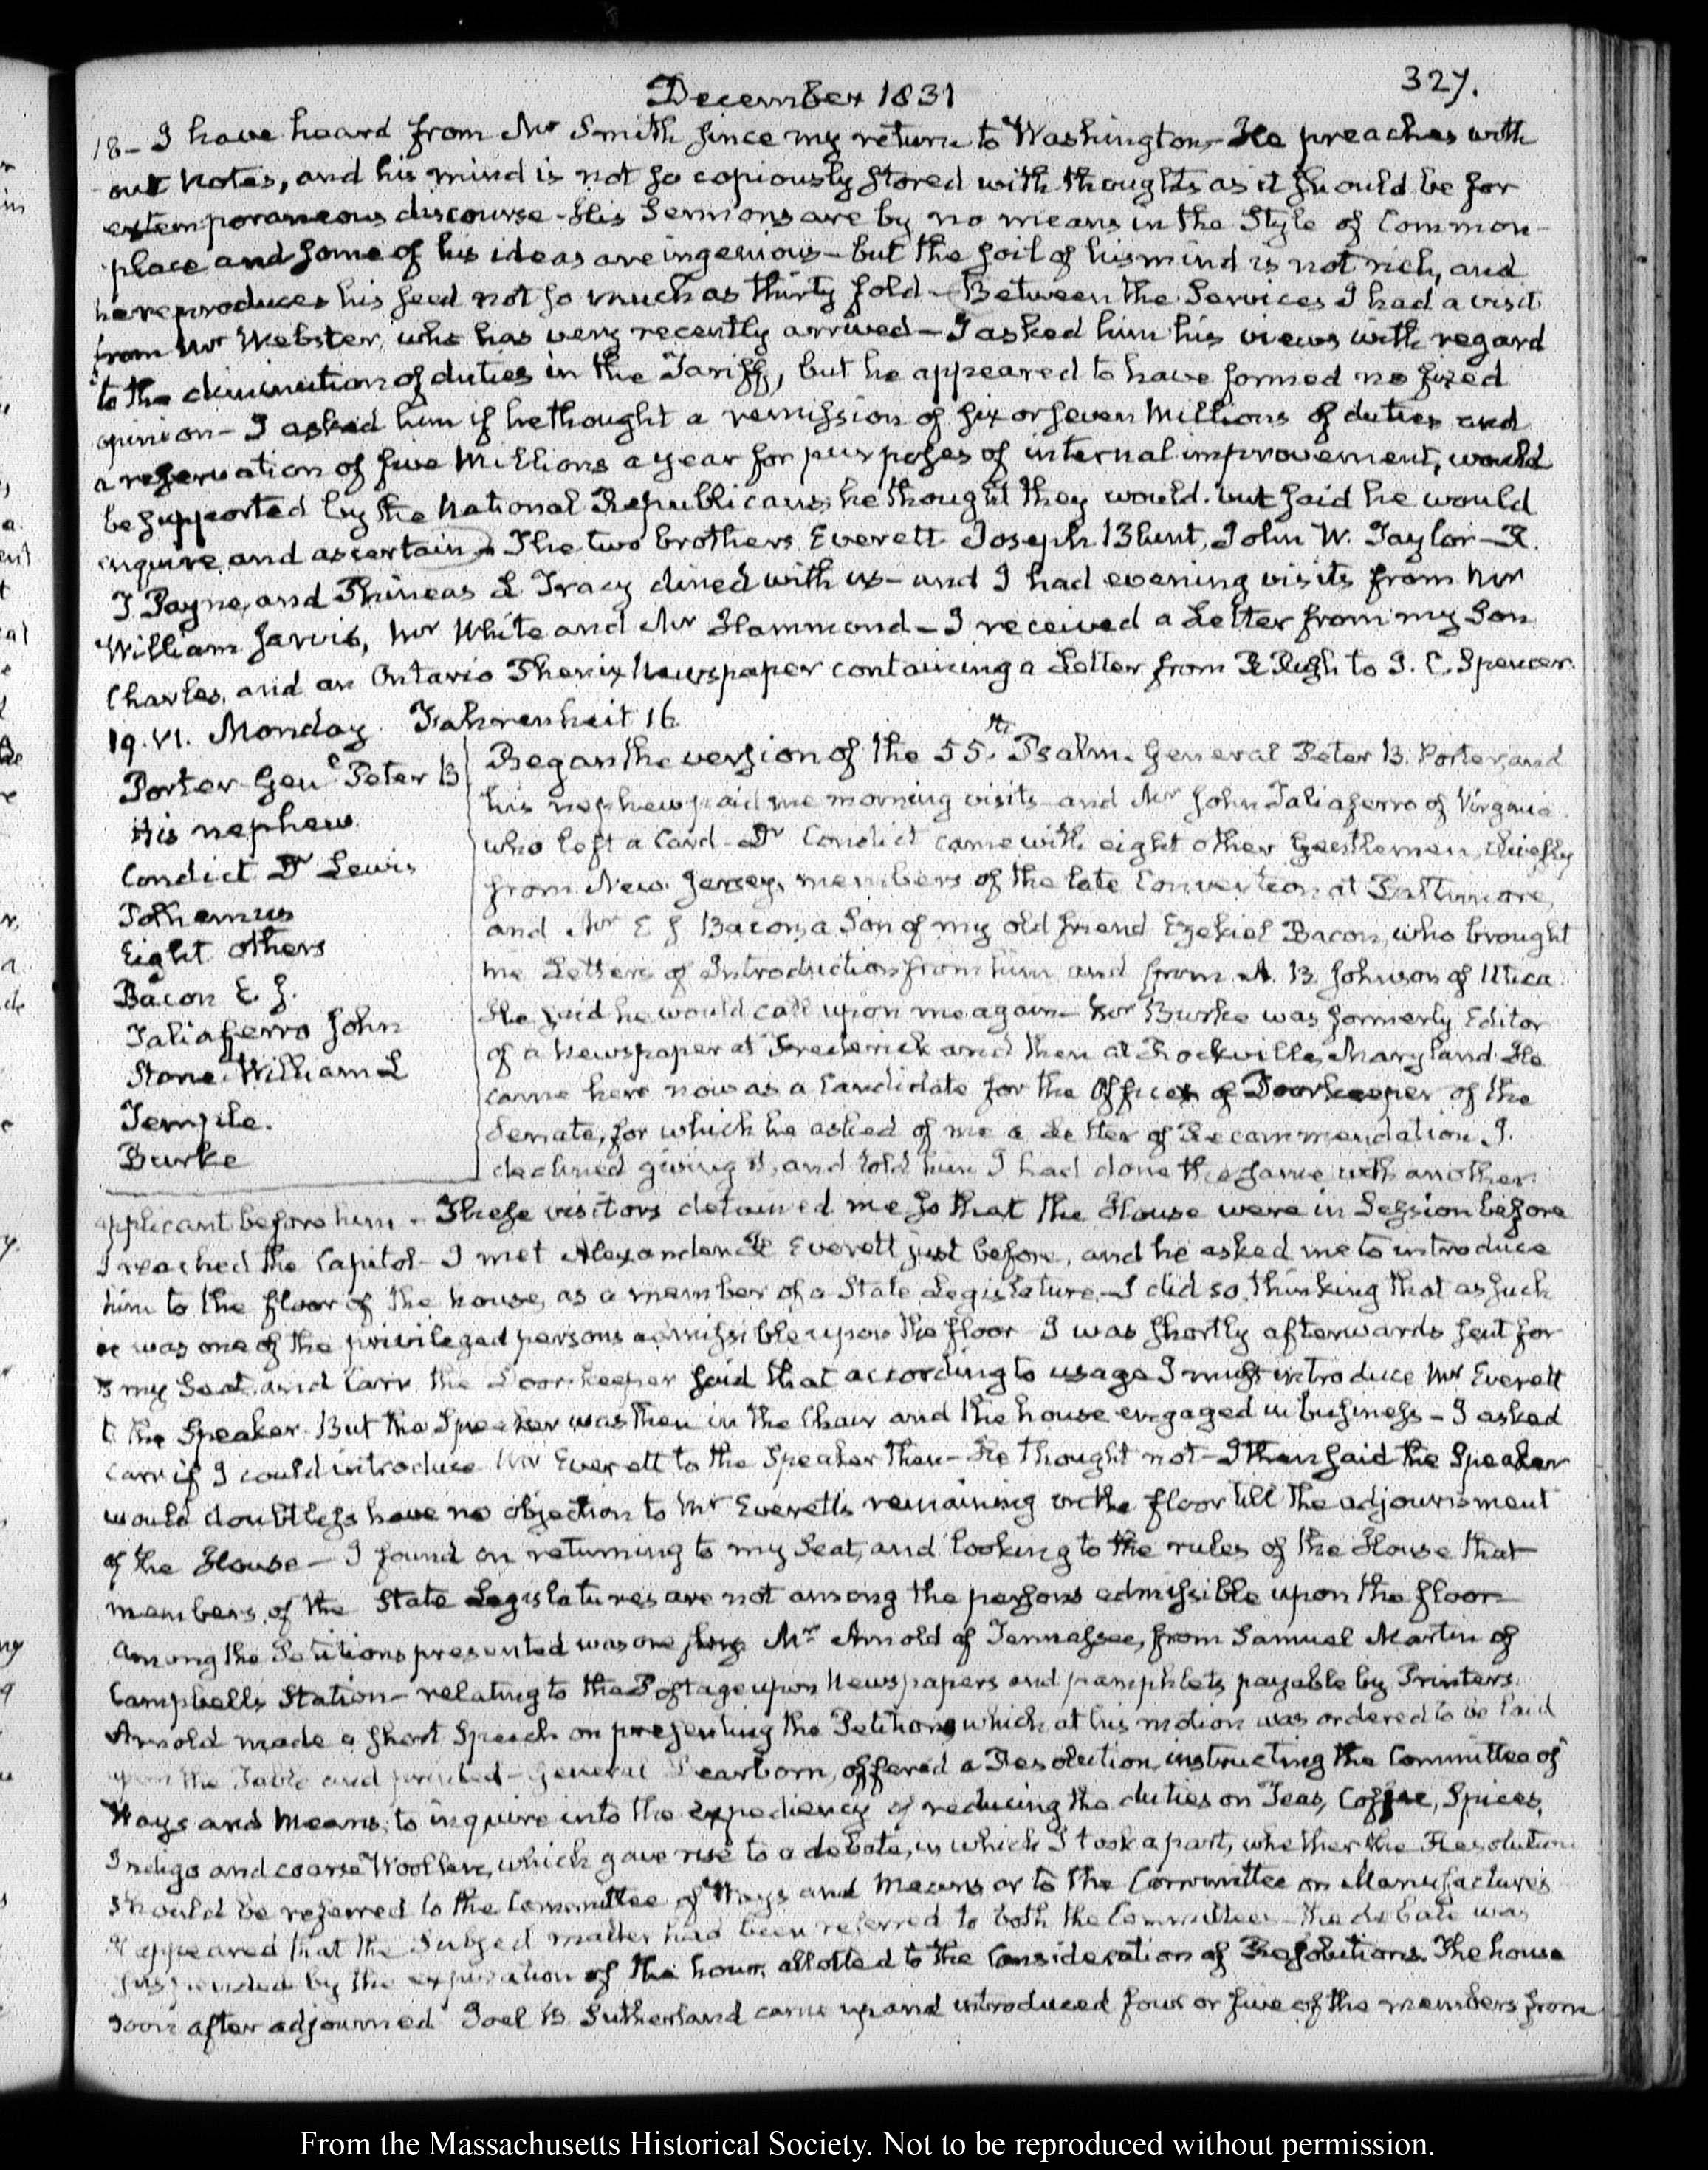 December 1831
327.
18- I have heard from Mr Smith since my return to Washington- He preaches with
out Notes, and his mind is not so copiously stored with thoughts as it should be for
extemporaneous discourse- His Sermons are by no means in the Style of Common-
place and some of his ideas are ingenious- but the soil of his mind is not rich, and
he reproduces his seed not so much as thirty fold- Between the Services I had a visit
from Mr Webster, who has very recently arrived- I asked him his views with regard
to the diminution of duties in the Tariff, but he appeared to have formed no fixed
opinion- I asked him if he thought a remission of six or seven Millions of duties and
a reservation of five Millions a year for purposes of internal improvement, would
be supported by the National Republicans, he thought they would. but said he would
enquire, and ascertain- The two brothers Everett Joseph Blunt, John W. Taylor- R.
T Payne, and Phineas L Tracy dined with us- and I had evening visits from Mr
William Jarvis, Mr White and Mr Hammond- I received a Letter from my Son
Charles, and an Ontario Phenix Newspaper containing a Letter from R Rush to J. C. Spencer.
19. VI. Monday. Fahrenheit 16.
Porter Genl Peter B
His nephew.
Condict Dr Lewis
Polhemus
Eight others
Bacon E. J.
Taliaferro John
Stone William L
Temple.
Burke
Began the version of the 55.th Psalm. General Peter B. Porter, and
his nephew paid me morning visits- and Mr John Taliaferro of Virginia
who left a Card- Dr Condict came with eight other Gentlemen, chiefly
from New Jersey, members of the late Convention at Baltimore,
and Mr E J Bacon, a Son of my old friend Ezekiel Bacon, who brought
me Letters of Introduction from him and from A. B Johnson of Utica.
He said he would call upon me again- Mr Burke was formerly Editor
of a Newspaper at Frederick and then at Rockville, Maryland. He
came here now as a Candidate for the Office of Doorkeeper of the
Senate, for which he asked of me a Letter of Recommendation. I
declined giving it, and told him I had done the same with another
applicant before him- These visitors detained me so that the House were in Session before
I reached the Capitol- I met Alexander H Everett just before, and he asked me to introduce
him to the floor of the house, as a member of a State Legislature- I did so, thinking that as such
he was one of the privileged persons admissible upon the floor- I was shortly afterwards sent for
to my Seat, and Carr the Doorkeeper said that according to usage I must introduce Mr Everett
to the Speaker. But the Speaker was then in the Chair and the house engaged in business- I asked
Carr if I could introduce Mr Everett to the Speaker then- He thought not- I then said the Speaker
would doubtless have no objection to Mr Everetts remaining on the floor till the adjournment
of the House- I found on returning to my Seat, and looking to the rules of the House that
members of the State Legislatures are not among the persons admissible upon the floor-
Among the Petitions presented was one by Mr Arnold of Tennessee, from Samuel Martin of
Campbells Station- relating to the Postage upon Newspapers and pamphlets payable by Printers.
Arnold made a short Speech on presenting the Petition, which at his motion was ordered to be laid
upon the Table and printed- General Dearborn, offered a Resolution, instructing the Committee of
Ways and Means, to inquire into the expediency of reducing the duties on Teas, Coffee, Spices,
Indigo and coarse Woollens, which gave rise to a debate, in which I took a part, whether the Resolution
should be referred to the Committee of Ways and Means or to the Committee on Manufactures
It appeared that the Subject matter had been referred to both the Committees- the debate was
suspended by the expiration of the hour, allotted to the Consideration of Resolutions. The house
soon after adjourned Joel B. Sutherland came up and introduced four or five of the members from
From the Massachusetts Historical Society. Not to be reproduced without permission.